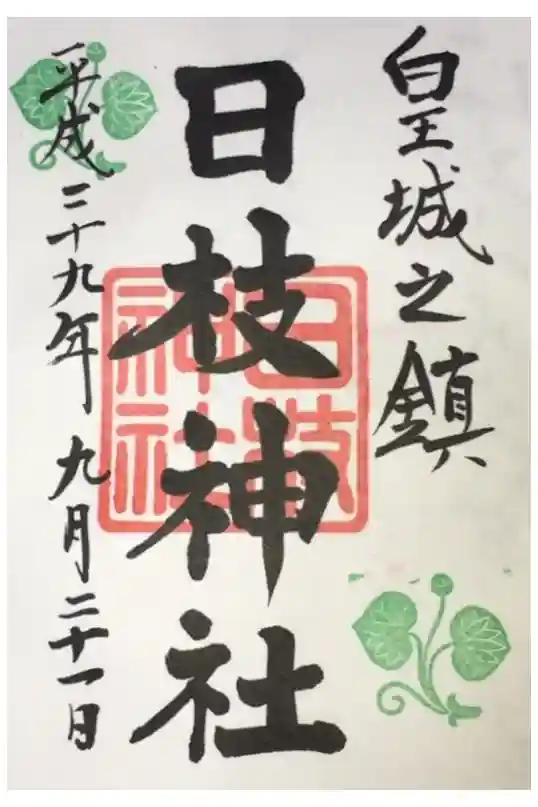 皇城之鎮
日枝神社
平成二十九年 九月二十一日
日枝
神社